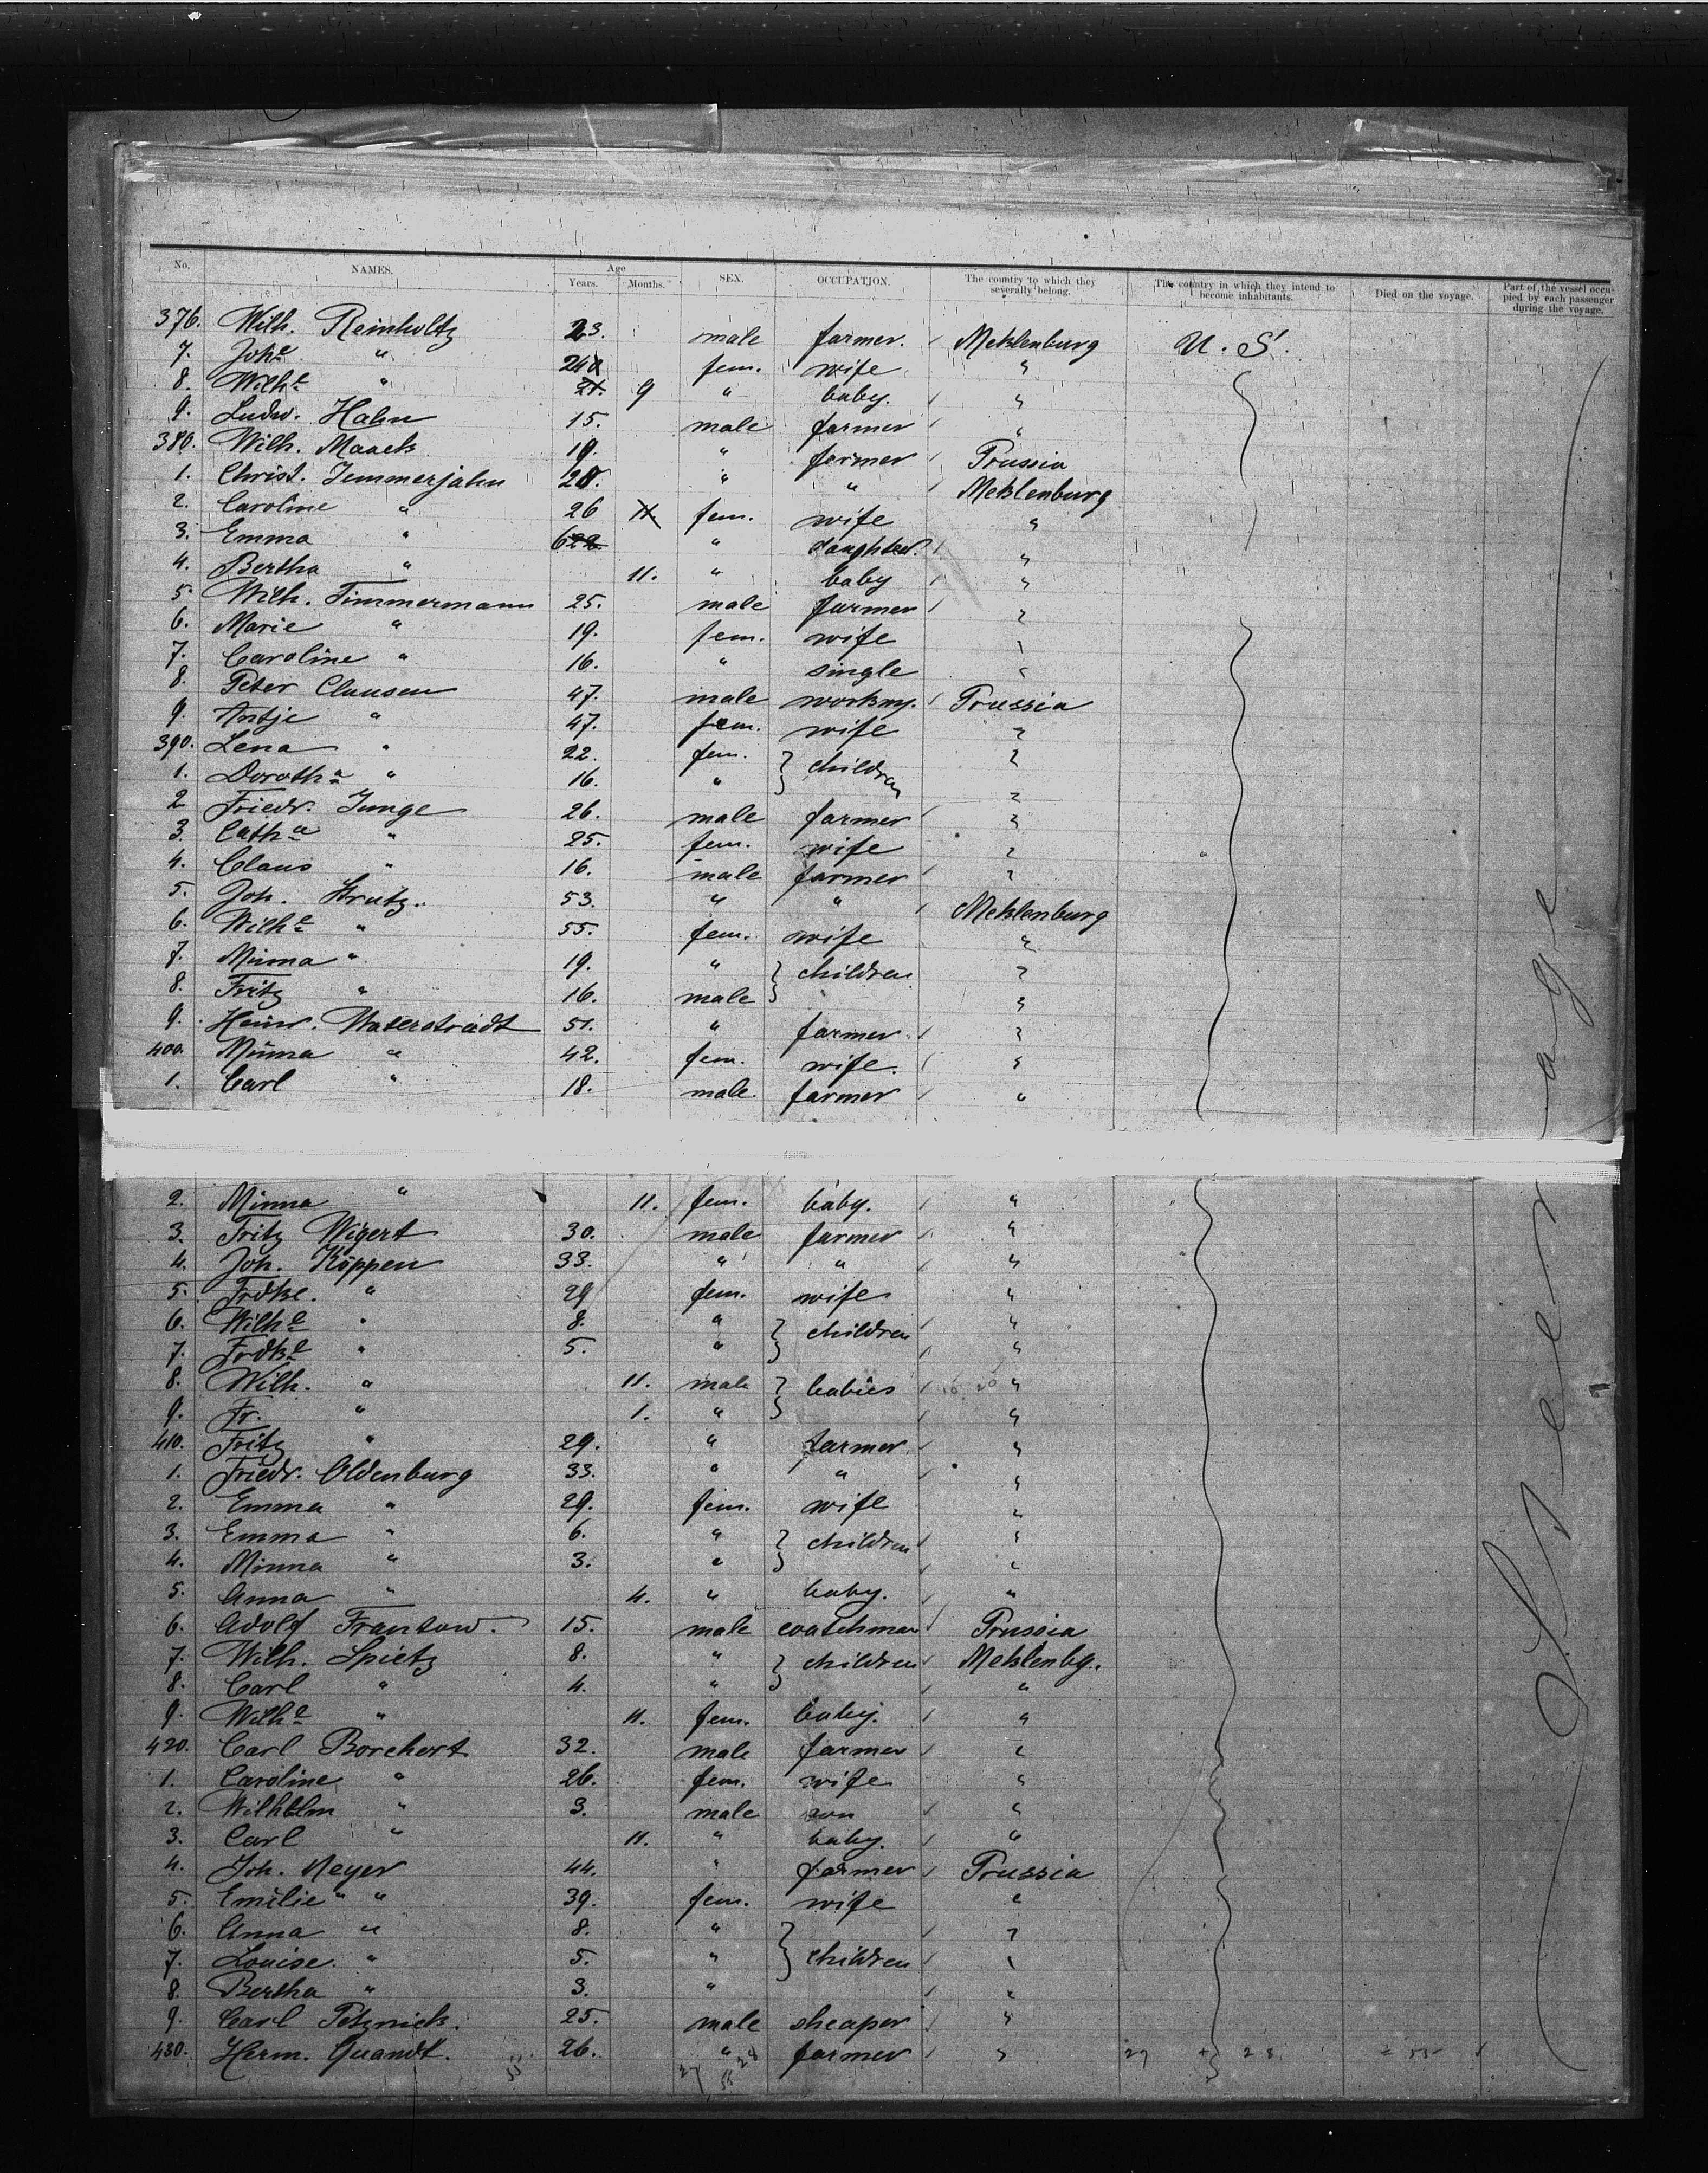 No. NAMES. Age Years. Months. SEX. OCCUPATION. The country to which they severally belong. The country in which they intend to become inhabitants. Died on the voyage. Part of the vessel occupied by each passenger during the voyage.
376. Wilh. Reinholtz 23. male farmer. Meklenburg U. S.
7. Johe " 24 fem. wife "
8. Wilhe " 9 " baby. "
9. Ludw. Hahn 15. male farmer "
380. Wilh. Maack 19. " farmer Prussia
1. Christ. Jemmerjahn 28. " " Meklenburg
2. Caroline " 26 fem. wife "
3. Emma " 6 " daughter. "
4. Bertha " 11. " baby "
5. Wilh. Timmermann 25. male farmer "
6. Marie " 19. fem. wife "
7. Caroline " 16. " single "
8. Peter Clausen 47. male workmn. Prussia
9. Antje " 47. fem. wife "
390. Lena " 22. fem. } children "
1. Doroth.a " 16. " "
2 Friedr. Junge 26. male farmer "
3. Catha " 25. fem. wife "
4. Claus " 16. male farmer "
5. Joh. Strutz. 53. " " Meklenburg
6. Wilhe " 55. fem. wife "
7. Minna " 19. " } children "
8. Fritz " 16. male "
9. Heinr. Waterstradt 51. " farmer "
400. Minna " 42. fem. wife. "
1. Carl " 18. male farmer "
2. Minna " 11. fem. baby. "
3. Fritz Wigert 30. male farmer "
4. Joh. Köppen 33. " " "
5. Frdke. " 29 fem. wife "
6. Wilhe " 8. " } children "
7. Frdke " 5. " "
8. Wilh. " 11. male } babies "
9. Fr. " 1. " "
410. Fritz " 29. " farmer "
1. Friedr. Oldenburg 33. " " "
2. Emma " 29. fem. wife "
3. Emma " 6. " } children "
4. Minna " 3. " "
5. Anna " 4. " baby. "
6. Adolf Frantow. 15. male coatchman Prussia
7. Wilh. Spietz 8. " } children Meklenbg.
8. Carl " 4. " "
9. Wilhe " 11. fem. baby. "
420. Carl Borchert 32. male farmer "
1. Caroline " 26. fem. wife "
2. Wilhelm " 3. male son "
3. Carl " 11. " baby. "
4. Joh. Meyer 44. " farmer Prussia
5. Emilie " 39. fem. wife "
6. Anna " 8. " } children "
7. Louise " 5. " "
8. Bertha " 3. " "
9. Carl Petznick. 25. male sheaper "
430. Herm. Quandt. 26. " farmer " 27 + 28 = 55
55 27 28
Steerage